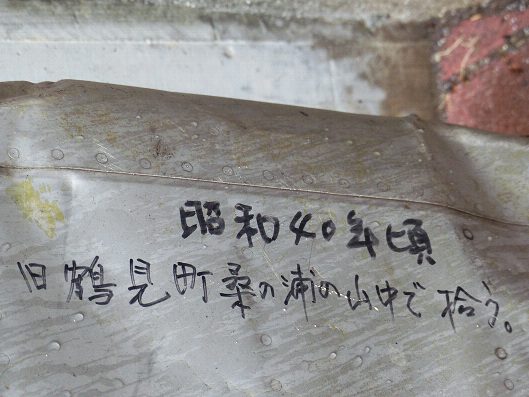 昭和40年頃
旧鶴見町桑の浦の山中で拾う。